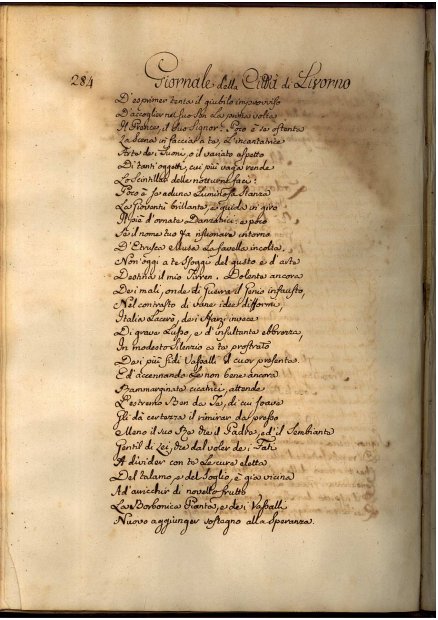 284 Giornale della Città di Livorno
D'esprimer tenta il giubilo improvviso
D'accoglier nel suo Sen la prima volta
Il Prence, il suo Signor. Poco è se ostenta
La Scena in faccia a te, l'incantatrice
Arte dei Fumi, o il variato aspetto
Di tanti oggetti, cui più vaga rende
Lo Scintillar delle notturne faci:
Poco è se aduna luminosa stanza
La Gioventù brillante, e guida in giro
Il piè d'ornate Danzatrici: e poco
Se il nome tuo fa risuonare intorno
D'Etrusca Musa la favella incolta.
Non oggi a te sfoggi del gusto e d'arte
Destina il mio Tirren. Dolente ancora
Dei mali, onde di Guerra il Genio infausto,
Nel contrasto di vane idee difformi,
Italia lacerò, dei sfarzi invece
Di grave Lusso, e d'insultante ebbrezza,
In modesto Silenzio a te prostrato
Dei più fidi Vassalli il cuor presenta.
Ed accennando le non bene ancora
Rammarginate cicatrici, attende
L'estremo Ben da Te, di cui soave
Gli dà certezza il rimirar da presso
Meno il suo Re che il Padre, ed il Sembiante
Gentil di Lei, che dal voler dei Fati
A divider con te le cure eletta
Del talamo, e del Soglio, è già vicina
Ad arricchir di novello frutto
La Borbonica Pianta, e dei Vassalli
Nuovo aggiunger sostegno alla Speranza.